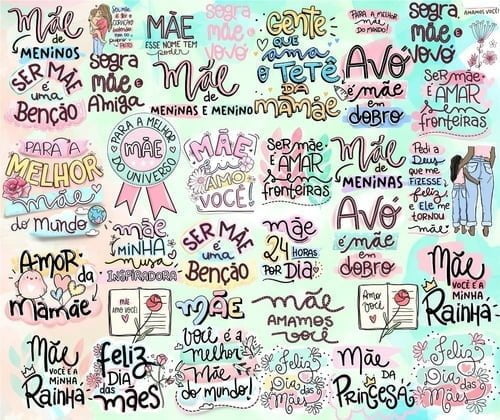 Mãe
de
MENINOS
MÃE
ESSE NOME TEM
poder
Sogra
MÃE e
VOVÓ
Gente
QUE
ama
O TETÊ
DA
mamãe
PARA A MELHOR
MÃE
DO MUNDO!
Sogra
MÃE e
VOVÓ
AMAMOS VOCÊ!
SER MÃE
é uma
Benção
Sogra
mãe e
Amiga
Mãe
DE
MENINAS E MENINO
AVÓ
é mãe
em
DOBRO
SER mãe
É AMAR
sem
fronteiras
PARA A
MELHOR
mãe
do mundo
PARA A MELHOR
MÃE
DO UNIVERSO
MÃE
Eu
AMO
VOCÊ!
SER mãe
É AMAR
sem
fronteiras
Mãe
de
MENINAS
Pedi a
Deus
que me
FIZESSE
feliz
e Ele me
TORNOU
mãe
mãe
MINHA
musa
INSPIRADORA
SER MÃE
é uma
Benção
mãe
24 HORAS
POR DIA
AVÓ
é mãe
em
DOBRO
AMOR da
mamãe
MÃE
AMO VOCÊ!
MÃE
Você é a
melhor
Mãe
do mundo!
mãe
AMAMOS
você
Amo
você
Mãe
VOCÊ É A
MINHA
Rainha
Mãe
VOCÊ É A
MINHA
Rainha
feliz
DIA
das
mães
Feliz
Dia das
Mães
Mãe
DA
PRINCESA
Feliz
Dia das
Mães